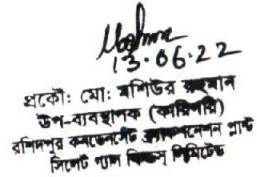 13.06.22
প্রকৌ: মো: মশিউর রহমান
উপ-ব্যবস্থাপক (কারিগরি)
রশিদপুর কনডেনসেট ফ্রাকশনেশন প্লান্ট
সিলেট গ্যাস ফিল্ডস্ লিমিটেড